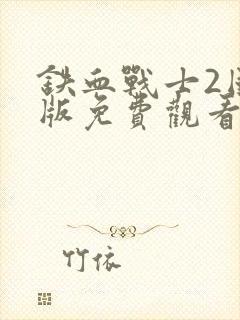 鉄血戰士2
版免費觀看
竹依